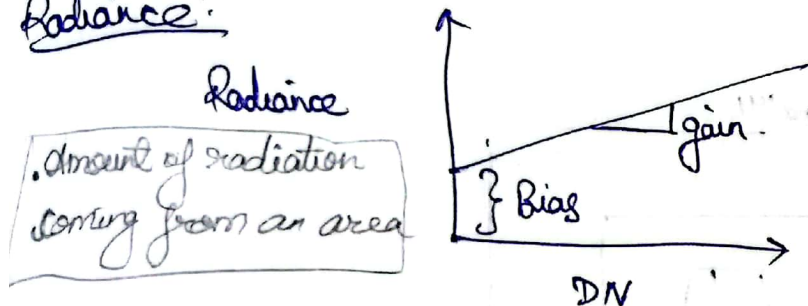 Radiance.
Radiance
.Amount of radiation
coming from an area
gain.
} Bias
DN